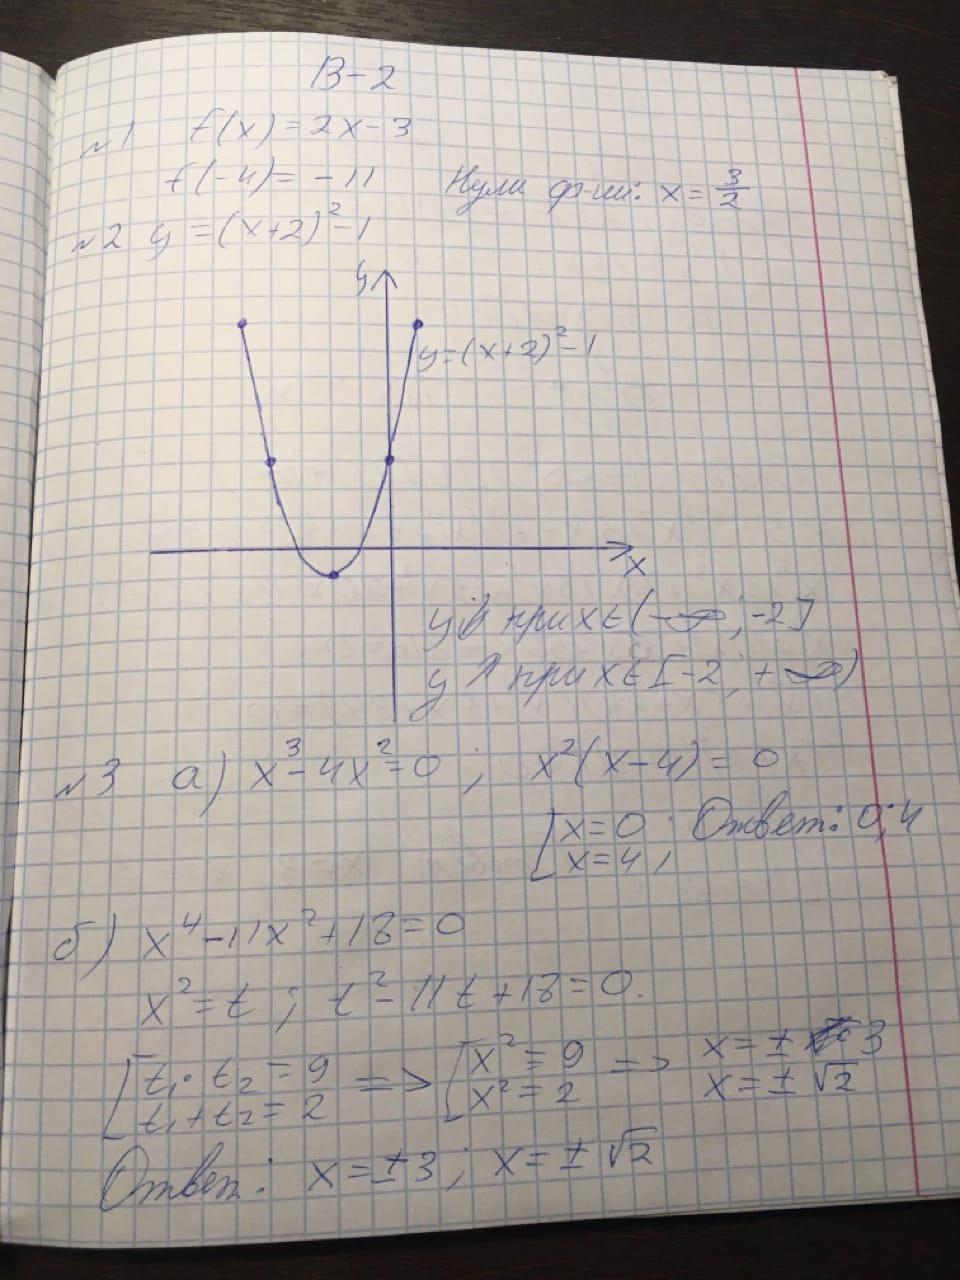 В-2
№1 f(x) = 2x-3
f(-4) = -11 Нули ф-ии: x = 3/2
№2 y = (x+2)²-1
y
y=(x+2)²-1
x
y↓ при x∈(-∞; -2]
y↗ при x∈[-2; +∞)
№3 а) x³-4x²=0; x²(x-4) = 0
[x=0
x=4; Ответ: 0; 4
б) x⁴-11x²+18=0
x²=t; t²-11t+18=0.
[t₁·t₂=9 => [x²=9 => x=±3
t₁+t₂=2 x²=2 x=±√2
Ответ: x=±3; x=±√2